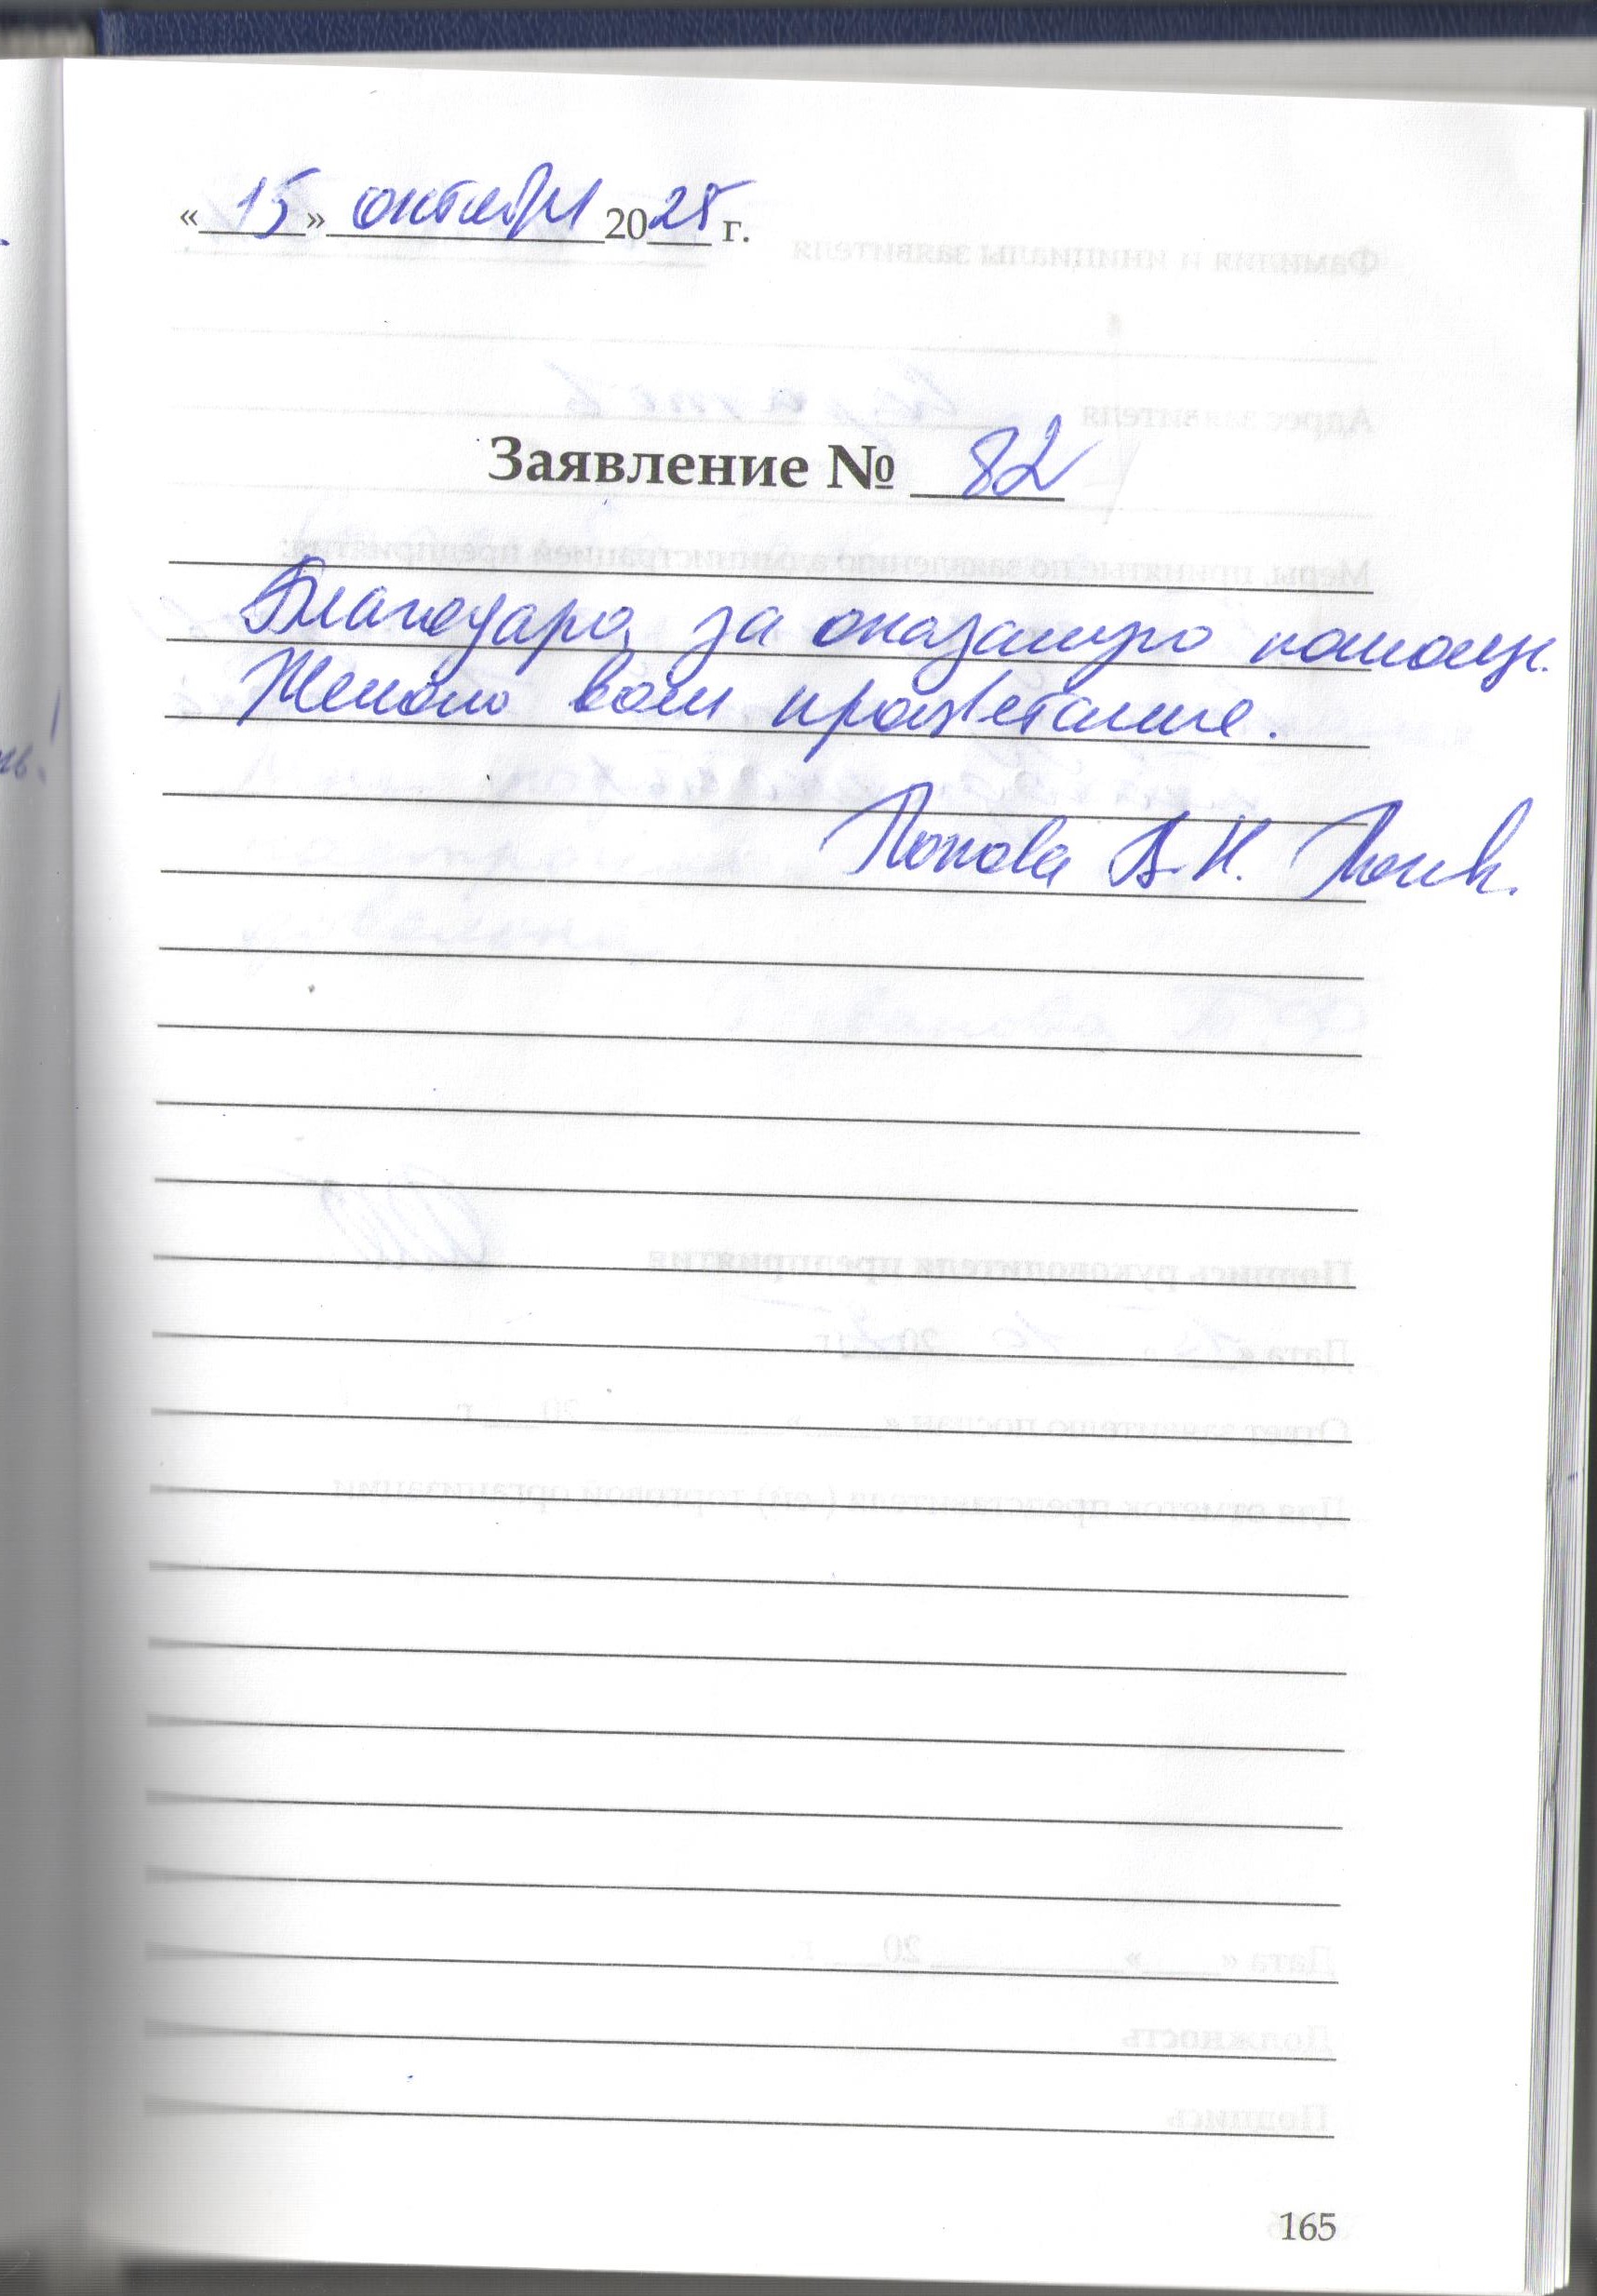 « 15 » октября 2025 г.
Заявление № 82
Благодарю за оказаную помощь.
Желаю вам процветание.
Попова В.Н.
165